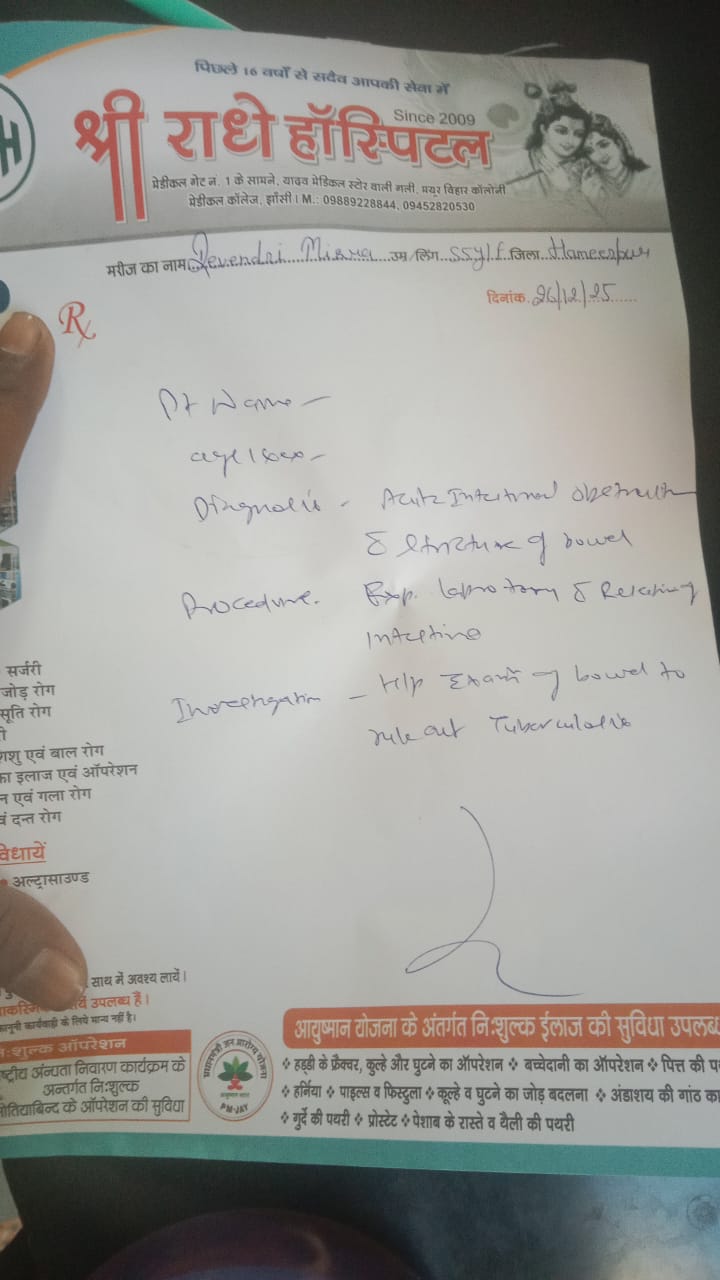 पिछले 16 वर्षों से सदैव आपकी सेवा में
श्री राधे हॉस्पिटल
Since 2009
मेडीकल गेट नं. 1 के सामने, यादव मेडिकल स्टोर वाली गली, मयूर विहार कॉलोनी
मेडीकल कॉलेज, झाँसी। M.: 09889228844, 09452820530
मरीज का नाम Devendri Misra उम्र/लिंग 55y/f जिला Hameerpur
दिनांक 26/12/25
Rx
Pt Name -
age/sex -
Diagnosis - Acute Intestinal Obstruction
stricture of bowel
Procedure. Exp. laprotomy & Resection of
Intestine
Investigation - H/p Exam of bowel to
rule out Tuberculosis
सर्जरी
जोड़ रोग
सूति रोग
शिशु एवं बाल रोग
का इलाज एवं ऑपरेशन
न एवं गला रोग
वं दन्त रोग
विधायें
अल्ट्रासाउण्ड
साथ में अवश्य लायें।
उपलब्ध हैं।
कानूनी कार्यवाही के लिये मान्य नहीं है।
नि:शुल्क ऑपरेशन
ष्ट्रीय अन्धता निवारण कार्यक्रम के
अन्तर्गत नि:शुल्क
मोतियाबिन्द के ऑपरेशन की सुविधा
प्रधानमंत्री जन आरोग्य योजना
PM-JAY
आयुष्मान योजना के अंतर्गत नि:शुल्क ईलाज की सुविधा उपलब
❖ हड्डी के फ्रैक्चर, कुल्हे और घुटने का ऑपरेशन ❖ बच्चेदानी का ऑपरेशन ❖ पित्त की प
❖ हर्निया ❖ पाइल्स व फिस्टुला ❖ कूल्हे व घुटने का जोड़ बदलना ❖ अंडाशय की गांठ का
❖ गुर्दे की पथरी ❖ प्रोस्टेट ❖ पेशाब के रास्ते व थैली की पथरी